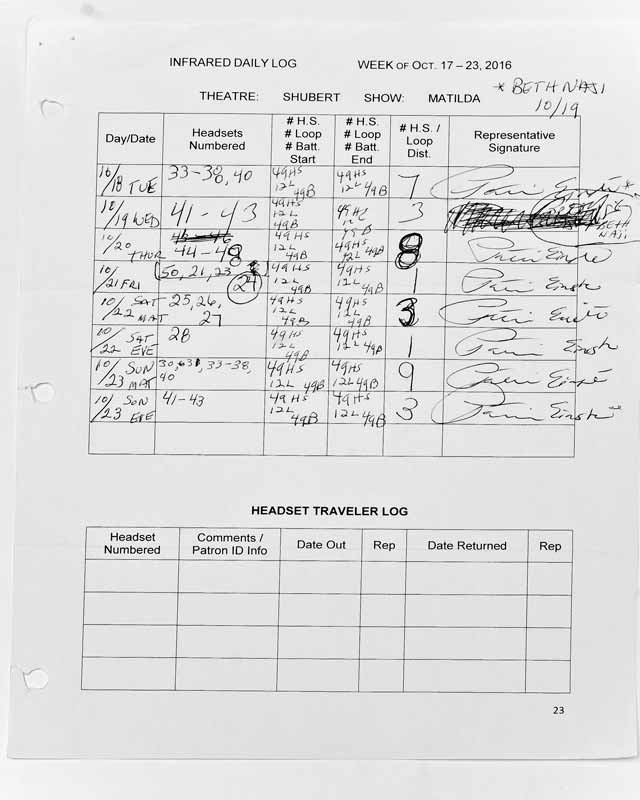 INFRARED DAILY LOG WEEK OF OCT. 17 – 23, 2016
* BETH NAJI
10/19
THEATRE: SHUBERT SHOW: MATILDA
Day/Date Headsets Numbered # H.S. # Loop # Batt. Start # H.S. # Loop # Batt. End # H.S. / Loop Dist. Representative Signature
10/18 TUE 33-38, 40 49HS 12L 49B 49HS 12L 49B 7
10/19 WED 41-43 49HS 12L 49B 3 BETH NAJI
10/20 THUR 44-48 49HS 12L 49B 49HS 12L 49B 8
10/21 FRI 50, 21, 23 24 49HS 12L 49B 49HS 12L 49B 1
10/22 SAT MAT 25, 26, 27 49HS 12L 49B 49HS 12L 49B 3
10/22 SAT EVE 28 49HS 12L 49B 49HS 12L 49B 1
10/23 SUN MAT 33-38, 40 49HS 12L 49B 49HS 12L 49B 9
10/23 SUN EVE 41-43 49HS 12L 49B 49HS 12L 49B 3
HEADSET TRAVELER LOG
Headset Numbered Comments / Patron ID Info Date Out Rep Date Returned Rep
23